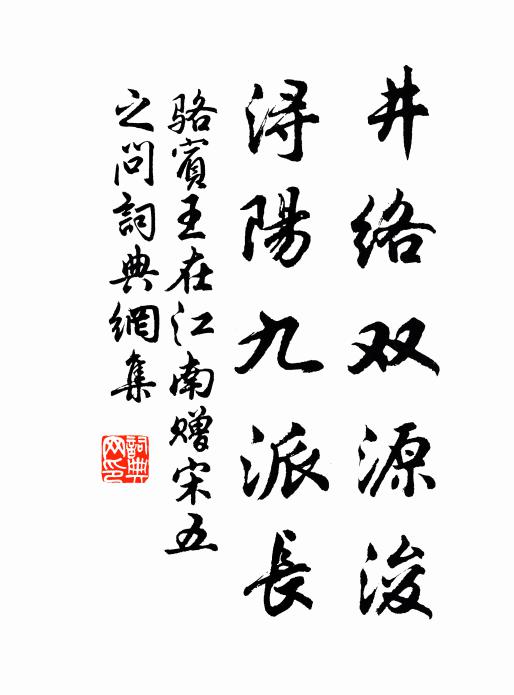 井络双源浚
浔陽九派長
骆賓王在江南赠宋五
之问詞典網集
詞典
网印